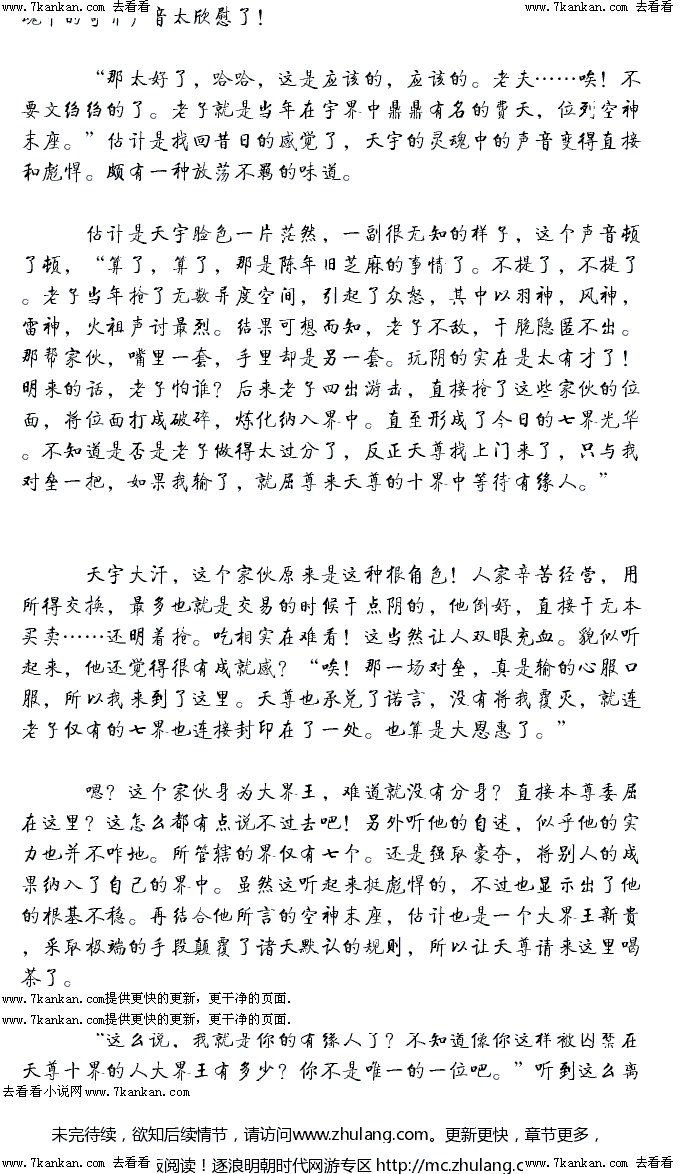 www.7kankan.com 去看看 www.7kankan.com 去看看
音太欣慰了！
“那太好了，哈哈，这是应该的，应该的。老夫……唉！不
要文绉绉的了。老子就是当年在宇界中鼎鼎有名的费天，位列空神
末座。”估计是找回昔日的感觉了，天宇的灵魂中的声音变得直接
和彪悍。颇有一种放荡不羁的味道。
估计是天宇脸色一片茫然，一副很无知的样子，这个声音顿
了顿，“算了，算了，那是陈年旧芝麻的事情了。不提了，不提了
。老子当年抢了无数异度空间，引起了众怒，其中以羽神，风神，
雷神，火祖声讨最烈。结果可想而知，老子不敌，干脆隐匿不出。
那帮家伙，嘴里一套，手里却是另一套。玩阴的实在是太有才了！
明来的话，老子怕谁？后来老子四出游击，直接抢了这些家伙的位
面，将位面打成破碎，炼化纳入界中。直至形成了今日的七界光华
。不知道是否是老子做得太过分了，反正天尊找上门来了，只与我
对垒一把，如果我输了，就屈尊来天尊的十界中等待有缘人。”
天宇大汗，这个家伙原来是这种狠角色！人家辛苦经营，用
所得交换，最多也就是交易的时候干点阴的，他倒好，直接干无本
买卖……还明着抢。吃相实在难看！这当然让人双眼充血。貌似听
起来，他还觉得很有成就感？“唉！那一场对垒，真是输的心服口
服，所以我来到了这里。天尊也承兑了诺言，没有将我覆灭，就连
老子仅有的七界也连接封印在了一处。也算是大恩惠了。”
嗯？这个家伙身为大界王，难道就没有分身？直接本尊委屈
在这里？这怎么都有点说不过去吧！另外听他的自述，似乎他的实
力也并不咋地。所管辖的界仅有七个。还是强取豪夺，将别人的成
果纳入了自己的界中。虽然这听起来挺彪悍的，不过也显示出了他
的根基不稳。再结合他所言的空神末座，估计也是一个大界王新贵
，采取极端的手段颠覆了诸天默认的规则，所以让天尊请来这里喝
茶了。
www.7kankan.com提供更快的更新，更干净的页面.
www.7kankan.com提供更快的更新，更干净的页面.
“这么说，我就是你的有缘人了？不知道像你这样被囚禁在
天尊十界的人大界王有多少？你不是唯一的一位吧。”听到这么离
去看看小说网www.7kankan.com
未完待续，欲知后续情节，请访问www.zhulang.com。更新更快，章节更多，
www.7kankan.com 去看看 阅读！逐浪明朝时代网游专区 http://mc.zhulang.c www.7kankan.com 去看看